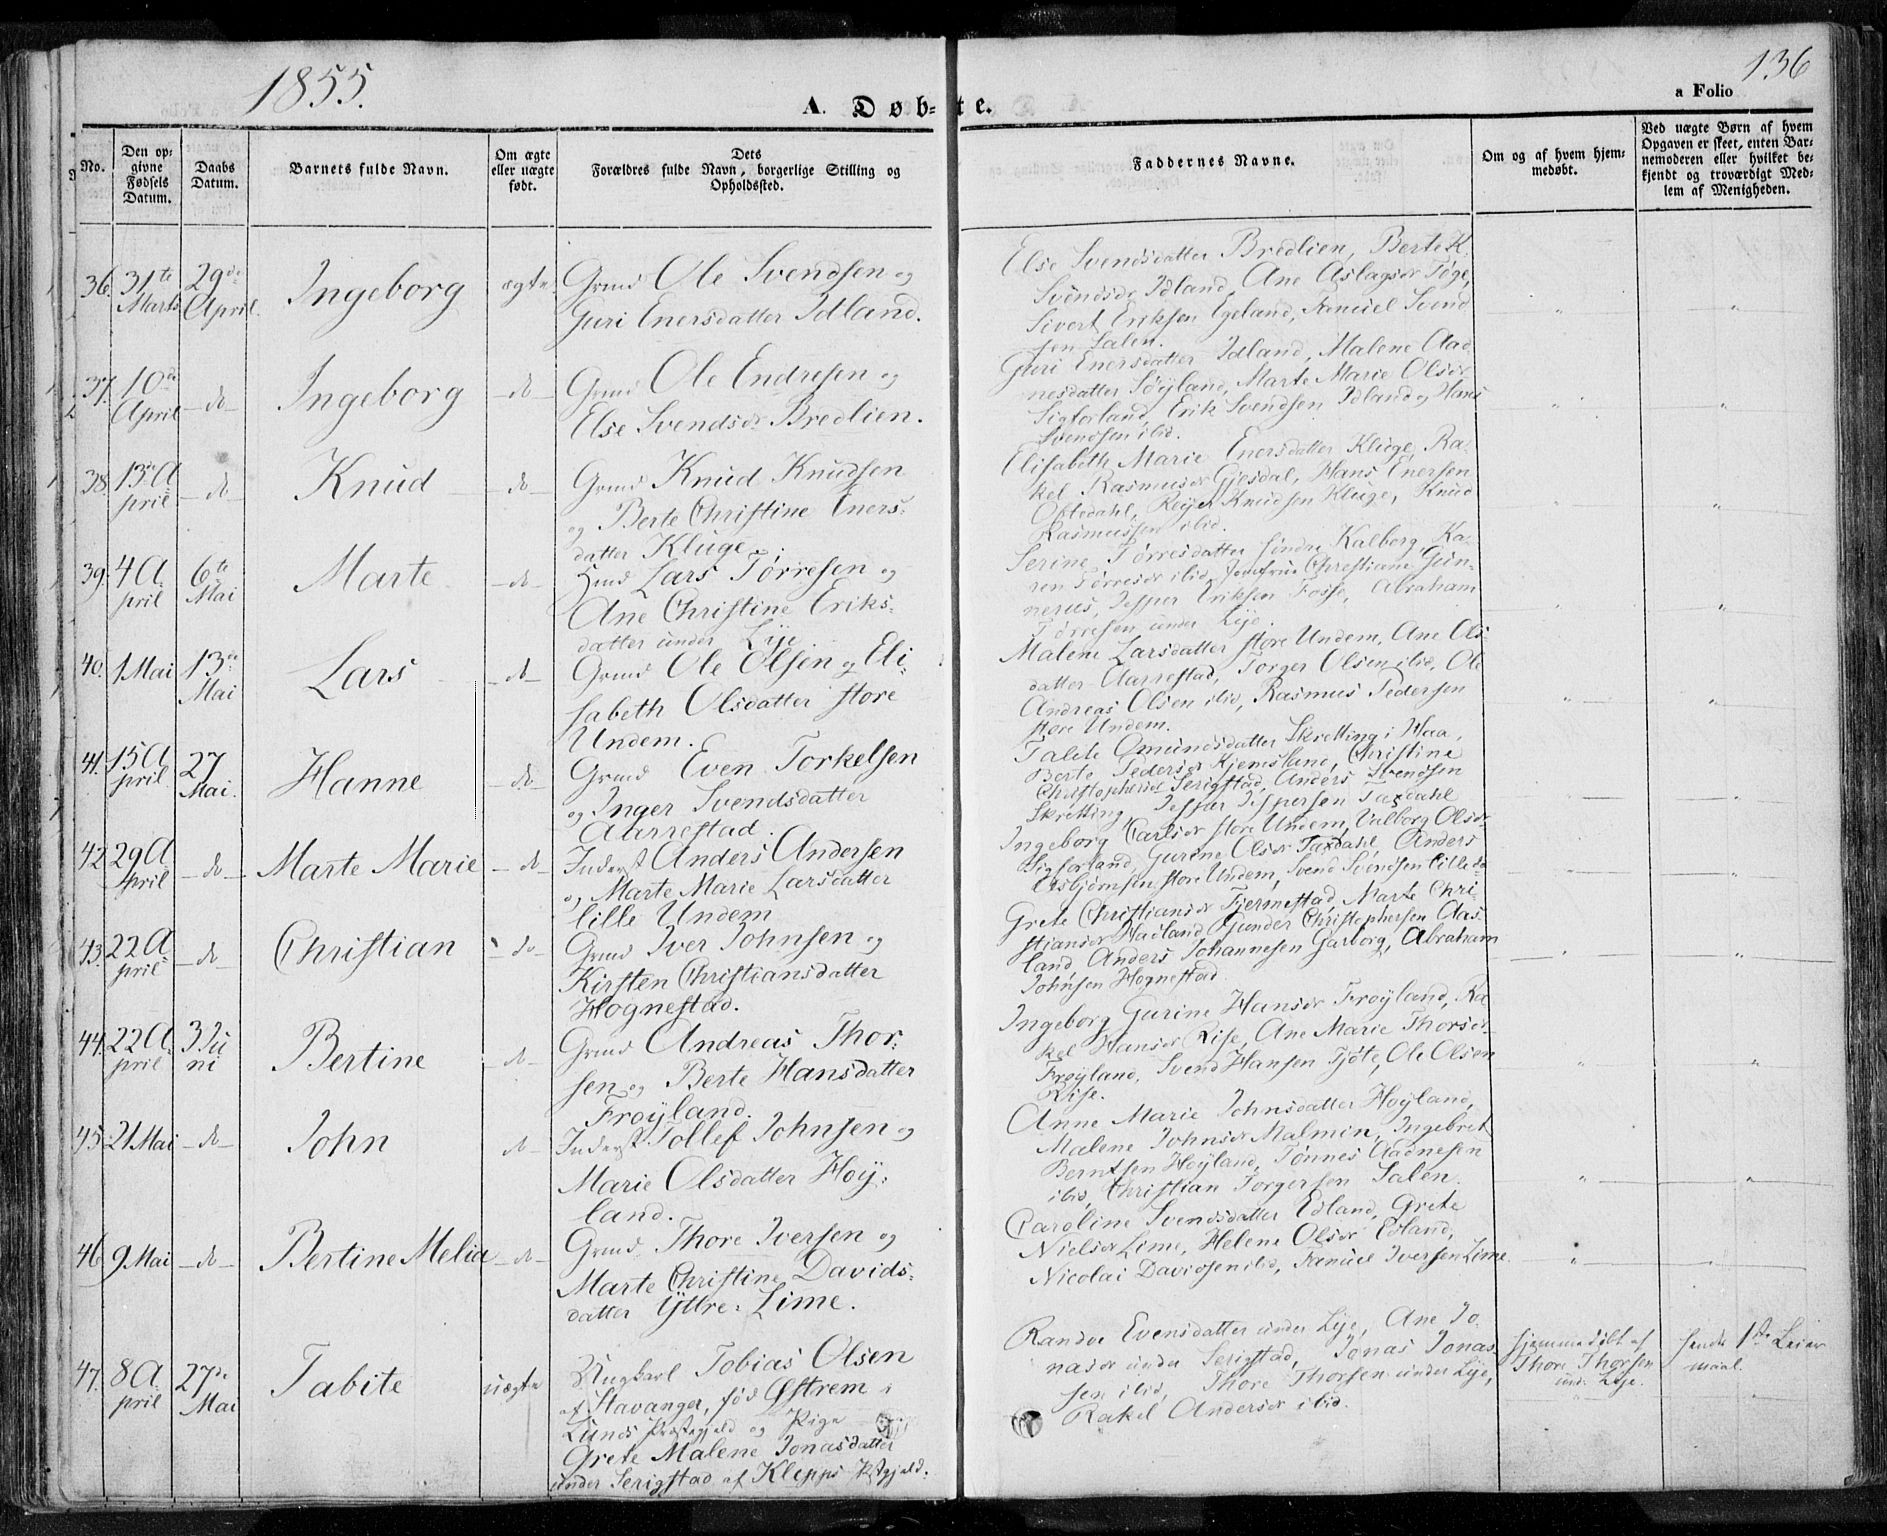 1855.
136
A. Døb-
te.
a Folio
No.
Den op-
givne
Fødsels
Datum.
Daabs
Datum.
Barnets fulde Navn.
Om ægte
eller uægte
født.
Forældres fulde Navn, borgerlige Stilling og
Dets
Opholdssted.
Faddernes Navne.
Om og af hvem hjem-
medøbt.
Ved uægte Børn af hvem
Opgaven er skeet, enten Bar-
nemoderen eller hvilket be-
kjendt og troværdigt Med-
lem af Menigheden.
36. 31te
Marts
29de
April.
Ingeborg
ægte
Grmd Ole Svendsen og
Guri Enersdatter Idland.
Else Svendsdatter Bredlien, Berte K.
Svendsdr Idland, Ane Aslagsdr Tøge,
Sivert Eriksen Egeland, Samuel Svend
sen Salen.
37. 10de
April
do
Ingeborg
do
Grmd Ole Endresen og
Else Svendsdr Bredlien.
Guri Enersdatter Idland, Malene Aad
nesdatter Søyland, Marte Marie Olsdr
Sigforland, Erik Svendsen Idland og Hans
Svendsen ibid.
38. 13de A
pril
do
Knud
do
Grmd Knud Knudsen
og Berte Christine Eners-
datter Kluge.
Elisabeth Marie Enersdatter Kluge, Ra-
kel Rasmusdr Gjesdal, Hans Enersen
Oftedahl, Reyer Knudsen Kluge, Knud
Rasmussen ibid.
39. 4 A
pril
6te
Mai
Marte
do
Hmd Lars Tørresen og
Ane Christine Eriks-
datter under Lye
Serine Tørresdatter søndre Kalberg, Ka-
ren Tørresdr ibid, Jomfrue Christiane Gun-
nerus, Jesper Eriksen Fosse, Abraham
Tørresen under Lye.
40. 1 Mai
13de
Mai
Lars
do
Grmd Ole Olsen og Eli-
sabeth Olsdatter store
Undem.
Malene Larsdatter store Undem, Ane Ols-
datter Aarrestad, Torger Olsen ibid, Ole
Andreas Olsen ibid, Rasmus Pedersen
store Undem.
41. 15 A
pril
27
Mai.
Hanne
do
Grmd Even Torkelsen
og Inger Svendsdatter
Aarrestad.
Talete Omundsdatter Skretting i Haa,
Berte Pedersdr Kjemsland, Christine
Christophersdr Serigstad, Anders Svendsen
Skretting, Jesper Jespersen Taxdahl
42 29 A
April
do
Marte Marie
do
Inderst Anders Andersen
og Marte Marie Larsdatter
lille Undem
Ingeborg Carlsdr store Undem, Valborg Olsdr
Sigforland, Gurine Olsdr Taxdahl, Anders
Asbjørnsen store Undem, Svend Svendsen lille do
43. 22 A
pril
do
Christian
do
Grmd Iver Johnsen og
Kirsten Christiansdatter
Hognestad.
Grete Christiansdr Tjermestad, Marte Chri-
stiansdr Hadland, Gunder Christophersen Aas-
land, Anders Johannesen Garborg, Abraham
Johnsen Hognestad
44. 22 A
pril
3 Ju
ni
Bertine
do
Grmd Andreas Thor-
sen og Berte Hansdatter
Frøyland.
Ingeborg Gurine Hansdr Frøyland, Ra
kel Hansdr Rise, Ane Marie Thorsdr
Frøyland, Svend Hansen Tjøte, Ole Olsen
Rise.
45. 21 Mai
do
John
do
Inderst Tollef Johnsen og
Marie Olsdatter Høy-
land.
Anne Marie Johnsdatter Høyland,
Malene Johnsdr Malmin, Ingebret
Berntsen Høyland, Tønnes Aadnesen
ibid, Christian Torgersen Salen.
46 9 Mai
do
Bertine Melia
do
Grmd Thore Iversen og
Marte Christine Davids-
datter Yttre-Lime.
Caroline Svendsdatter Edland, Grete
Nielsdr Lime, Helene Olsdr Edland,
Nicolai Davidsen ibid, Samuel Iversen Lime
47. 8 A
pril
27de
Mai
Tabite
uægte
Ungkarl Tobias Olsen
af Stavanger, fød Østrem i
Lunds Præstegjeld og Pige
Grete Malene Jonasdatter
under Serigstad af Klepps Pstgjeld.
Randve Evensdatter under Lye, Ane Jo
nasdr under Serigstad, Jonas Jonas
sen ibid, Thore Thorsen under Lye,
Rakel Andersdr ibid.
hjemmedøbt af
Thore Thorsen
und. Lye.
hendes 1ste Leier
maal.